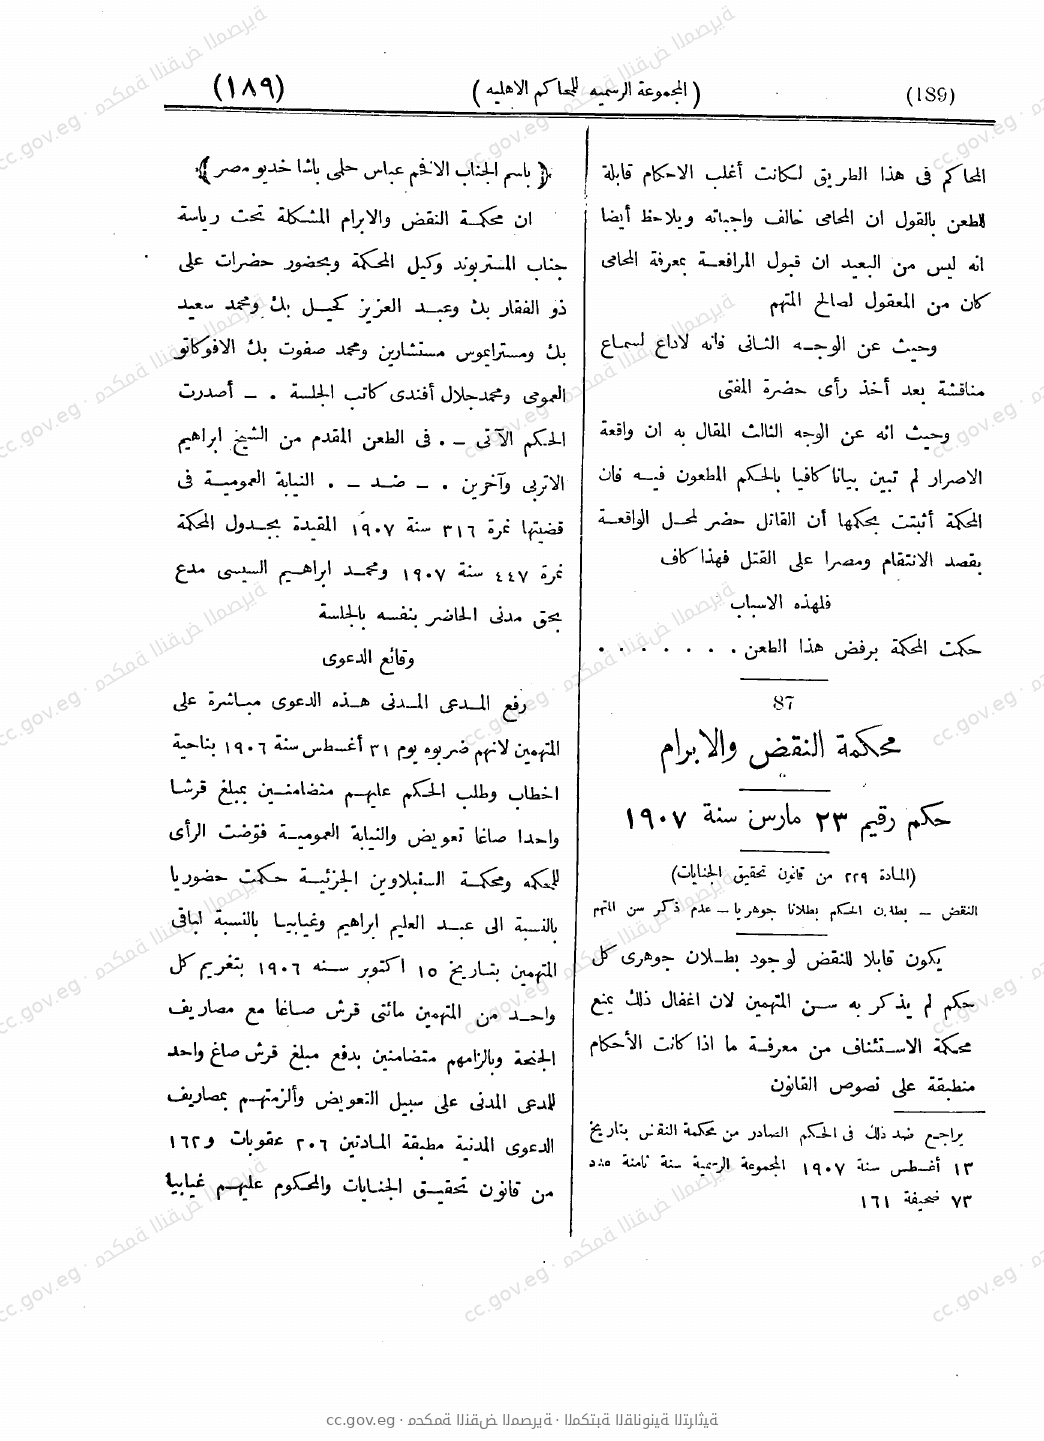 (189)
( المجموعة الرسميه للمحاكم الاهليه )
(١٨٩)
المحاكم فى هذا الطريق لكانت أغلب الاحكام قابلة
للطعن بالقول ان المحامى خالف واجباته ويلاحظ أيضا
انه ليس من البعيد ان قبول المرافعة بمعرفة المحامى
كان من المعقول لصالح المتهم
وحيث عن الوجه الثانى فانه لاداع لسماع
مناقشة بعد أخذ رأى حضرة المفتى
وحيث انه عن الوجه الثالث المقال به ان واقعة
الاصرار لم تبين بيانا كافيا بالحكم المطعون فيه فان
المحكمة أثبتت بحكمها أن القاتل حضر لمحل الواقعة
بقصد الانتقام ومصرا على القتل فهذا كاف
فلهذه الاسباب
حكمت المحكمة برفض هذا الطعن . . . . . . .
87
محكمة النقض والابرام
حكم رقيم ٢٣ مارس سنة ١٩٠٧
(المادة ٢٢٩ من قانون تحقيق الجنايات)
النقض – بطلان الحكم بطلانا جوهريا – عدم ذكر سن المتهم
يكون قابلا للنقض لوجود بطلان جوهرى كل
حكم لم يذكر به سن المتهمين لان اغفال ذلك يمنع
محكمة الاستئناف من معرفة ما اذا كانت الأحكام
منطبقة على نصوص القانون
يراجع ضد ذلك فى الحكم الصادر من محكمة النقض بتاريخ
١٣ أغسطس سنة ١٩٠٧ المجموعة الرسمية سنة ثامنة عدد
٧٣ صحيفة ١٦١
﴿ باسم الجناب الافخم عباس حلمى باشا خديو مصر ﴾
ان محكمة النقض والابرام المشكلة تحت رياسة
جناب المستر بوند وكيل المحكمة وبحضور حضرات على
ذو الفقار بك وعبد العزيز كحيل بك ومحمد سعيد
بك ومستر ايموس مستشارين ومحمد صفوت بك الافوكاتو
العمومى ومحمد جلال أفندى كاتب الجلسة . – أصدرت
الحكم الآتى – . فى الطعن المقدم من الشيخ ابراهيم
الاتربى وآخرين . – ضد – . النيابة العمومية فى
قضيتها نمرة ٣١٦ سنة ١٩٠٧ المقيدة بجدول المحكمة
نمرة ٤٤٧ سنة ١٩٠٧ ومحمد ابراهيم السيسى مدع
بحق مدنى الحاضر بنفسه بالجلسة
وقائع الدعوى
رفع المدعى المدنى هذه الدعوى مباشرة على
المتهمين لانهم ضربوه يوم ٣١ أغسطس سنة ١٩٠٦ بناحية
اخطاب وطلب الحكم عليهم متضامنين بمبلغ قرشا
واحدا صاغا تعويض والنيابة العمومية فوّضت الرأى
للمحكمه ومحكمة السنبلاوين الجزئية حكمت حضوريا
بالنسبة الى عبد العليم ابراهيم وغيابيا بالنسبة لباقى
المتهمين بتاريخ ١٥ اكتوبر سنه ١٩٠٦ بتغريم كل
واحد من المتهمين مائتى قرش صاغا مع مصاريف
الجنحة وبالزامهم متضامنين بدفع مبلغ قرش صاغ واحد
للمدعى المدنى على سبيل التعويض وألزمتهم بمصاريف
الدعوى المدنية مطبقة المادتين ٢٠٦ عقوبات و١٦٢
من قانون تحقيق الجنايات والمحكوم عليهم غيابيا
cc.gov.eg · محكمة النقض المصرية · المكتبة القانونية التراثية